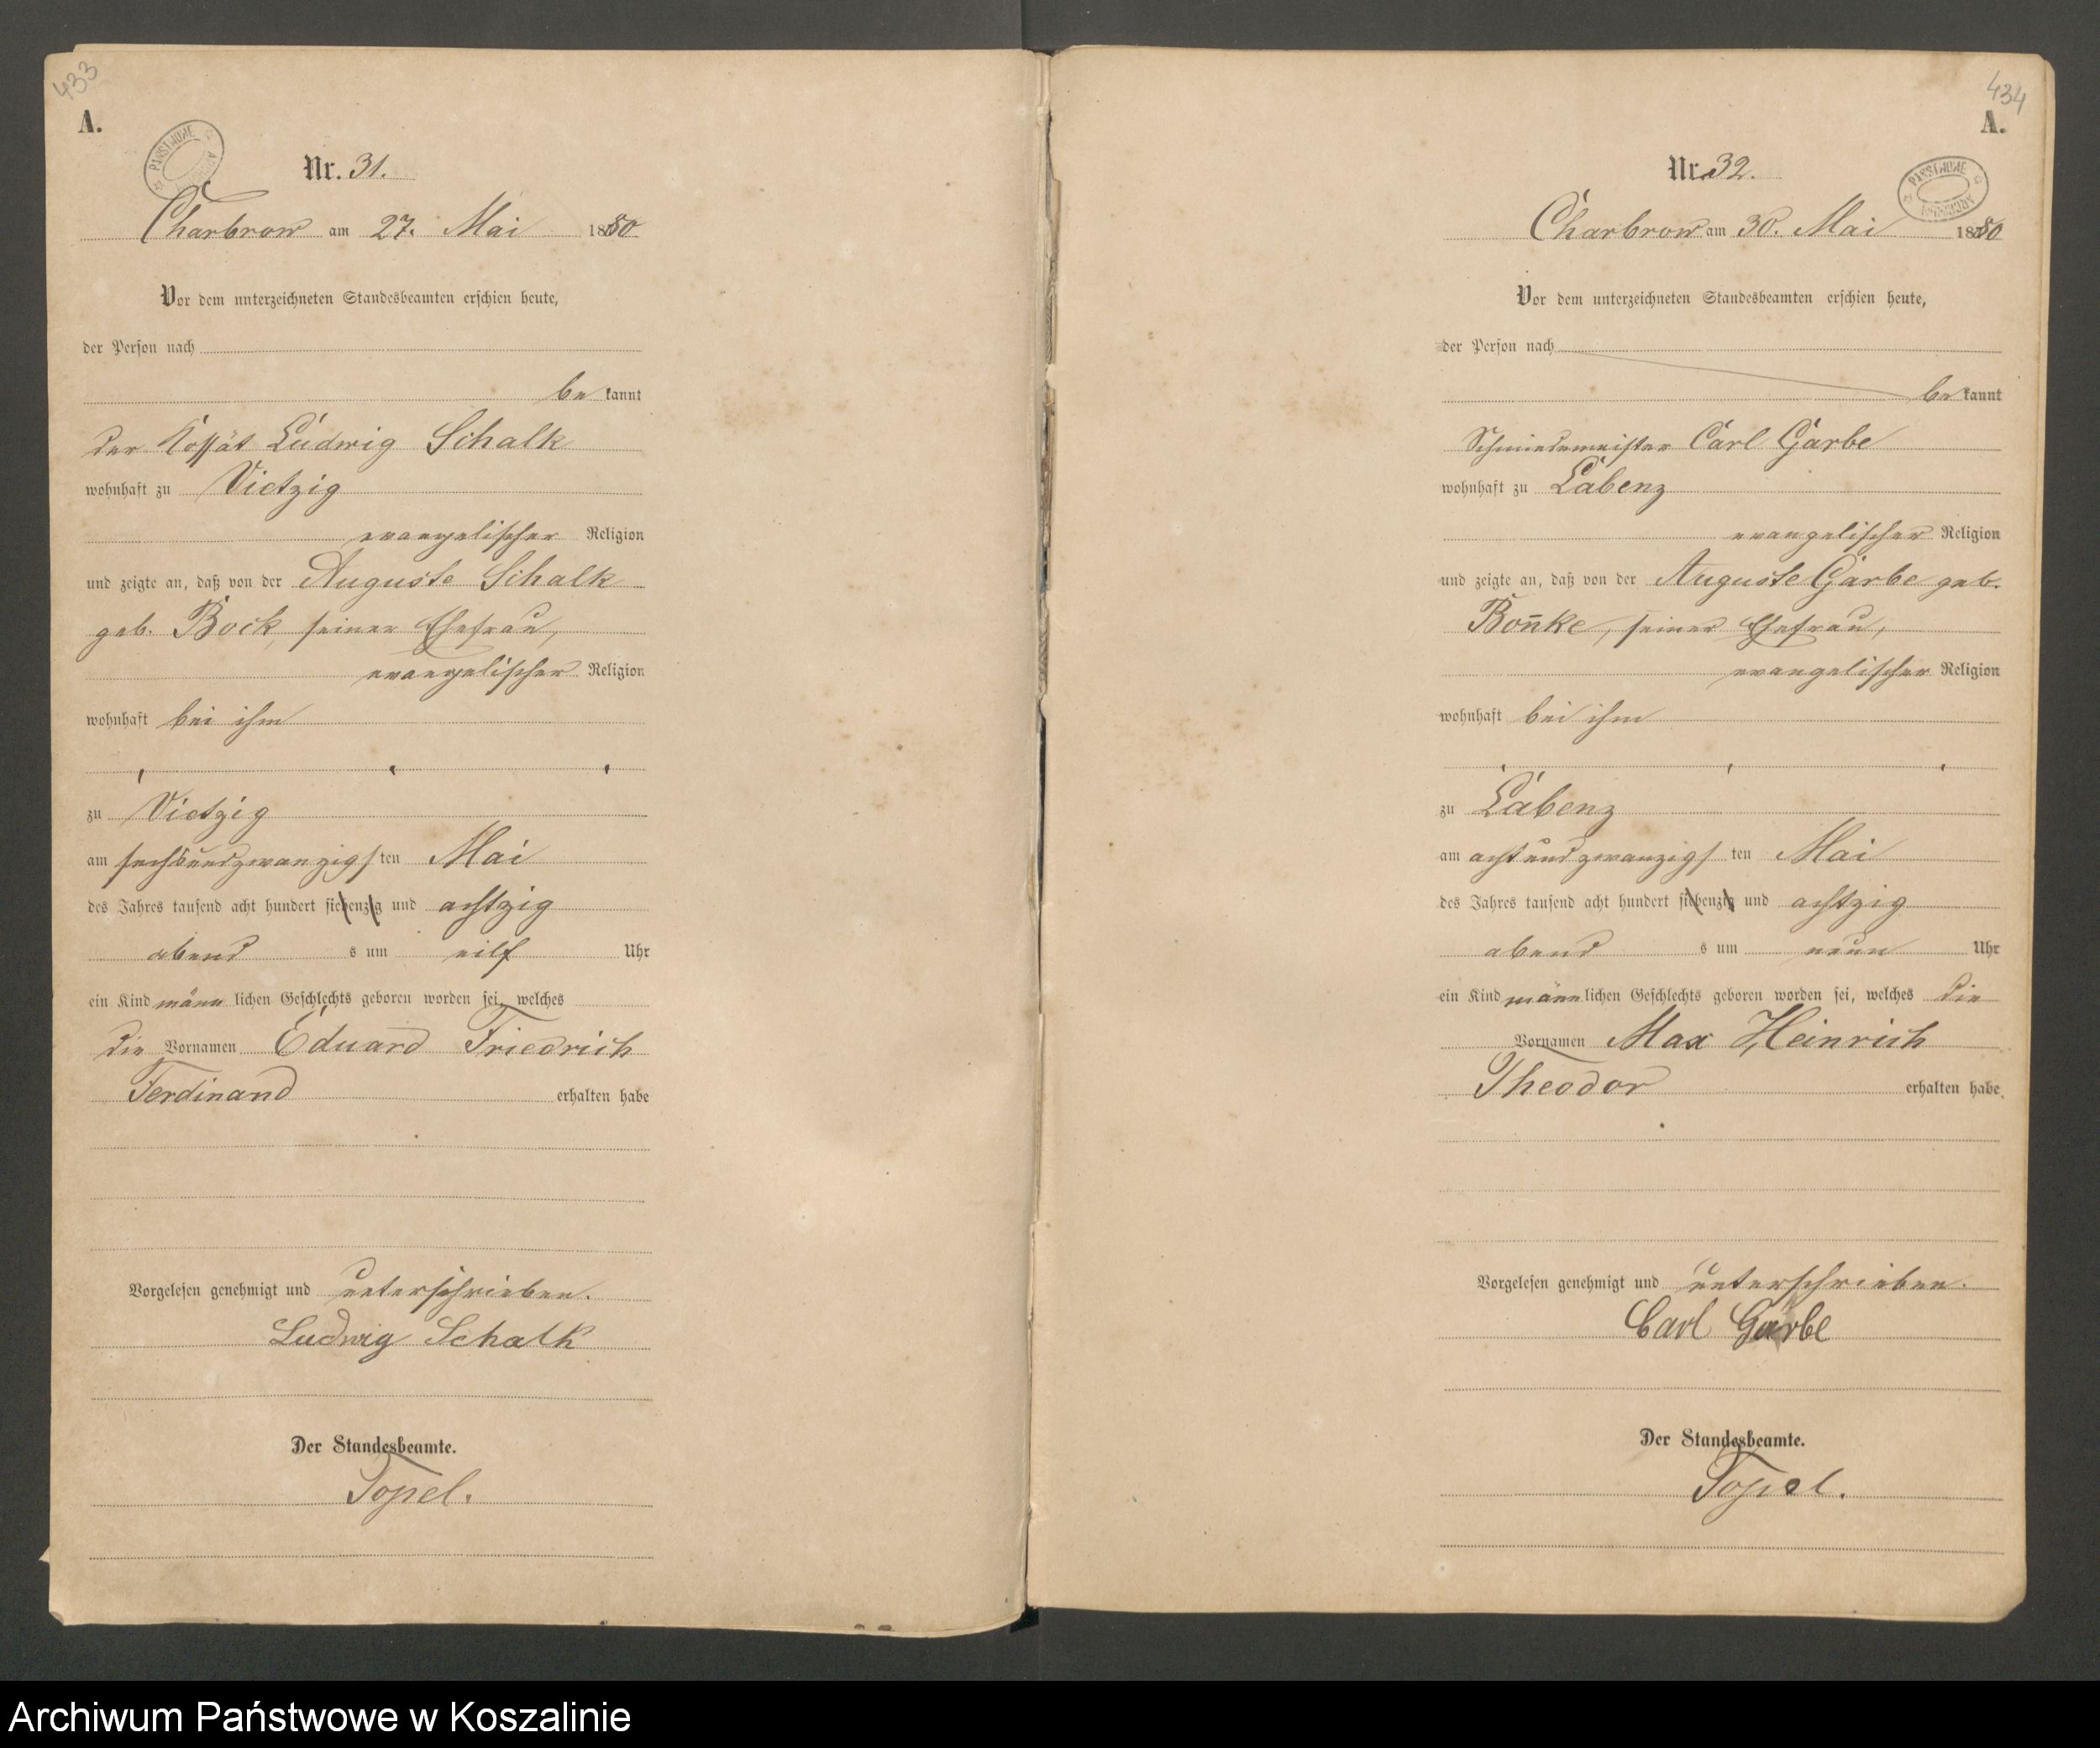 433
A.
PAŃSTWOWE ARCHIWUM
Nr. 31.
Charbrow am 27. Mai 1880
Vor dem unterzeichneten Standesbeamten erschien heute,
der Person nach
be kannt
der Kossät Ludwig Schalk
wohnhaft zu Vietzig
evangelischer Religion
und zeigte an, daß von der Auguste Schalk
geb. Bock, seiner Ehefrau,
evangelischer Religion
wohnhaft bei ihm
zu Vietzig
am sechsundzwanzigs ten Mai
des Jahres tausend acht hundert siebenzig und achtzig
abend s um eilf Uhr
ein Kind männ lichen Geschlechts geboren worden sei, welches
die Vornamen Eduard Friedrich
Ferdinand erhalten habe
Vorgelesen genehmigt und unterschrieben.
Ludwig Schalk
Der Standesbeamte.
Topel.
434
A.
PAŃSTWOWE ARCHIWUM
Nr. 32.
Charbrow am 30. Mai 1880
Vor dem unterzeichneten Standesbeamten erschien heute,
der Person nach
be kannt
Schmiedemeister Carl Garbe
wohnhaft zu Labenz
evangelischer Religion
und zeigte an, daß von der Auguste Garbe geb.
Bon̄ke, seiner Ehefrau,
evangelischer Religion
wohnhaft bei ihm
zu Labenz
am achtundzwanzigs ten Mai
des Jahres tausend acht hundert siebenzig und achtzig
abend s um neun Uhr
ein Kind männ lichen Geschlechts geboren worden sei, welches die
Vornamen Max Heinrich
Theodor erhalten habe.
Vorgelesen genehmigt und unterschrieben.
Carl Garbe
Der Standesbeamte.
Topel.
Archiwum Państwowe w Koszalinie